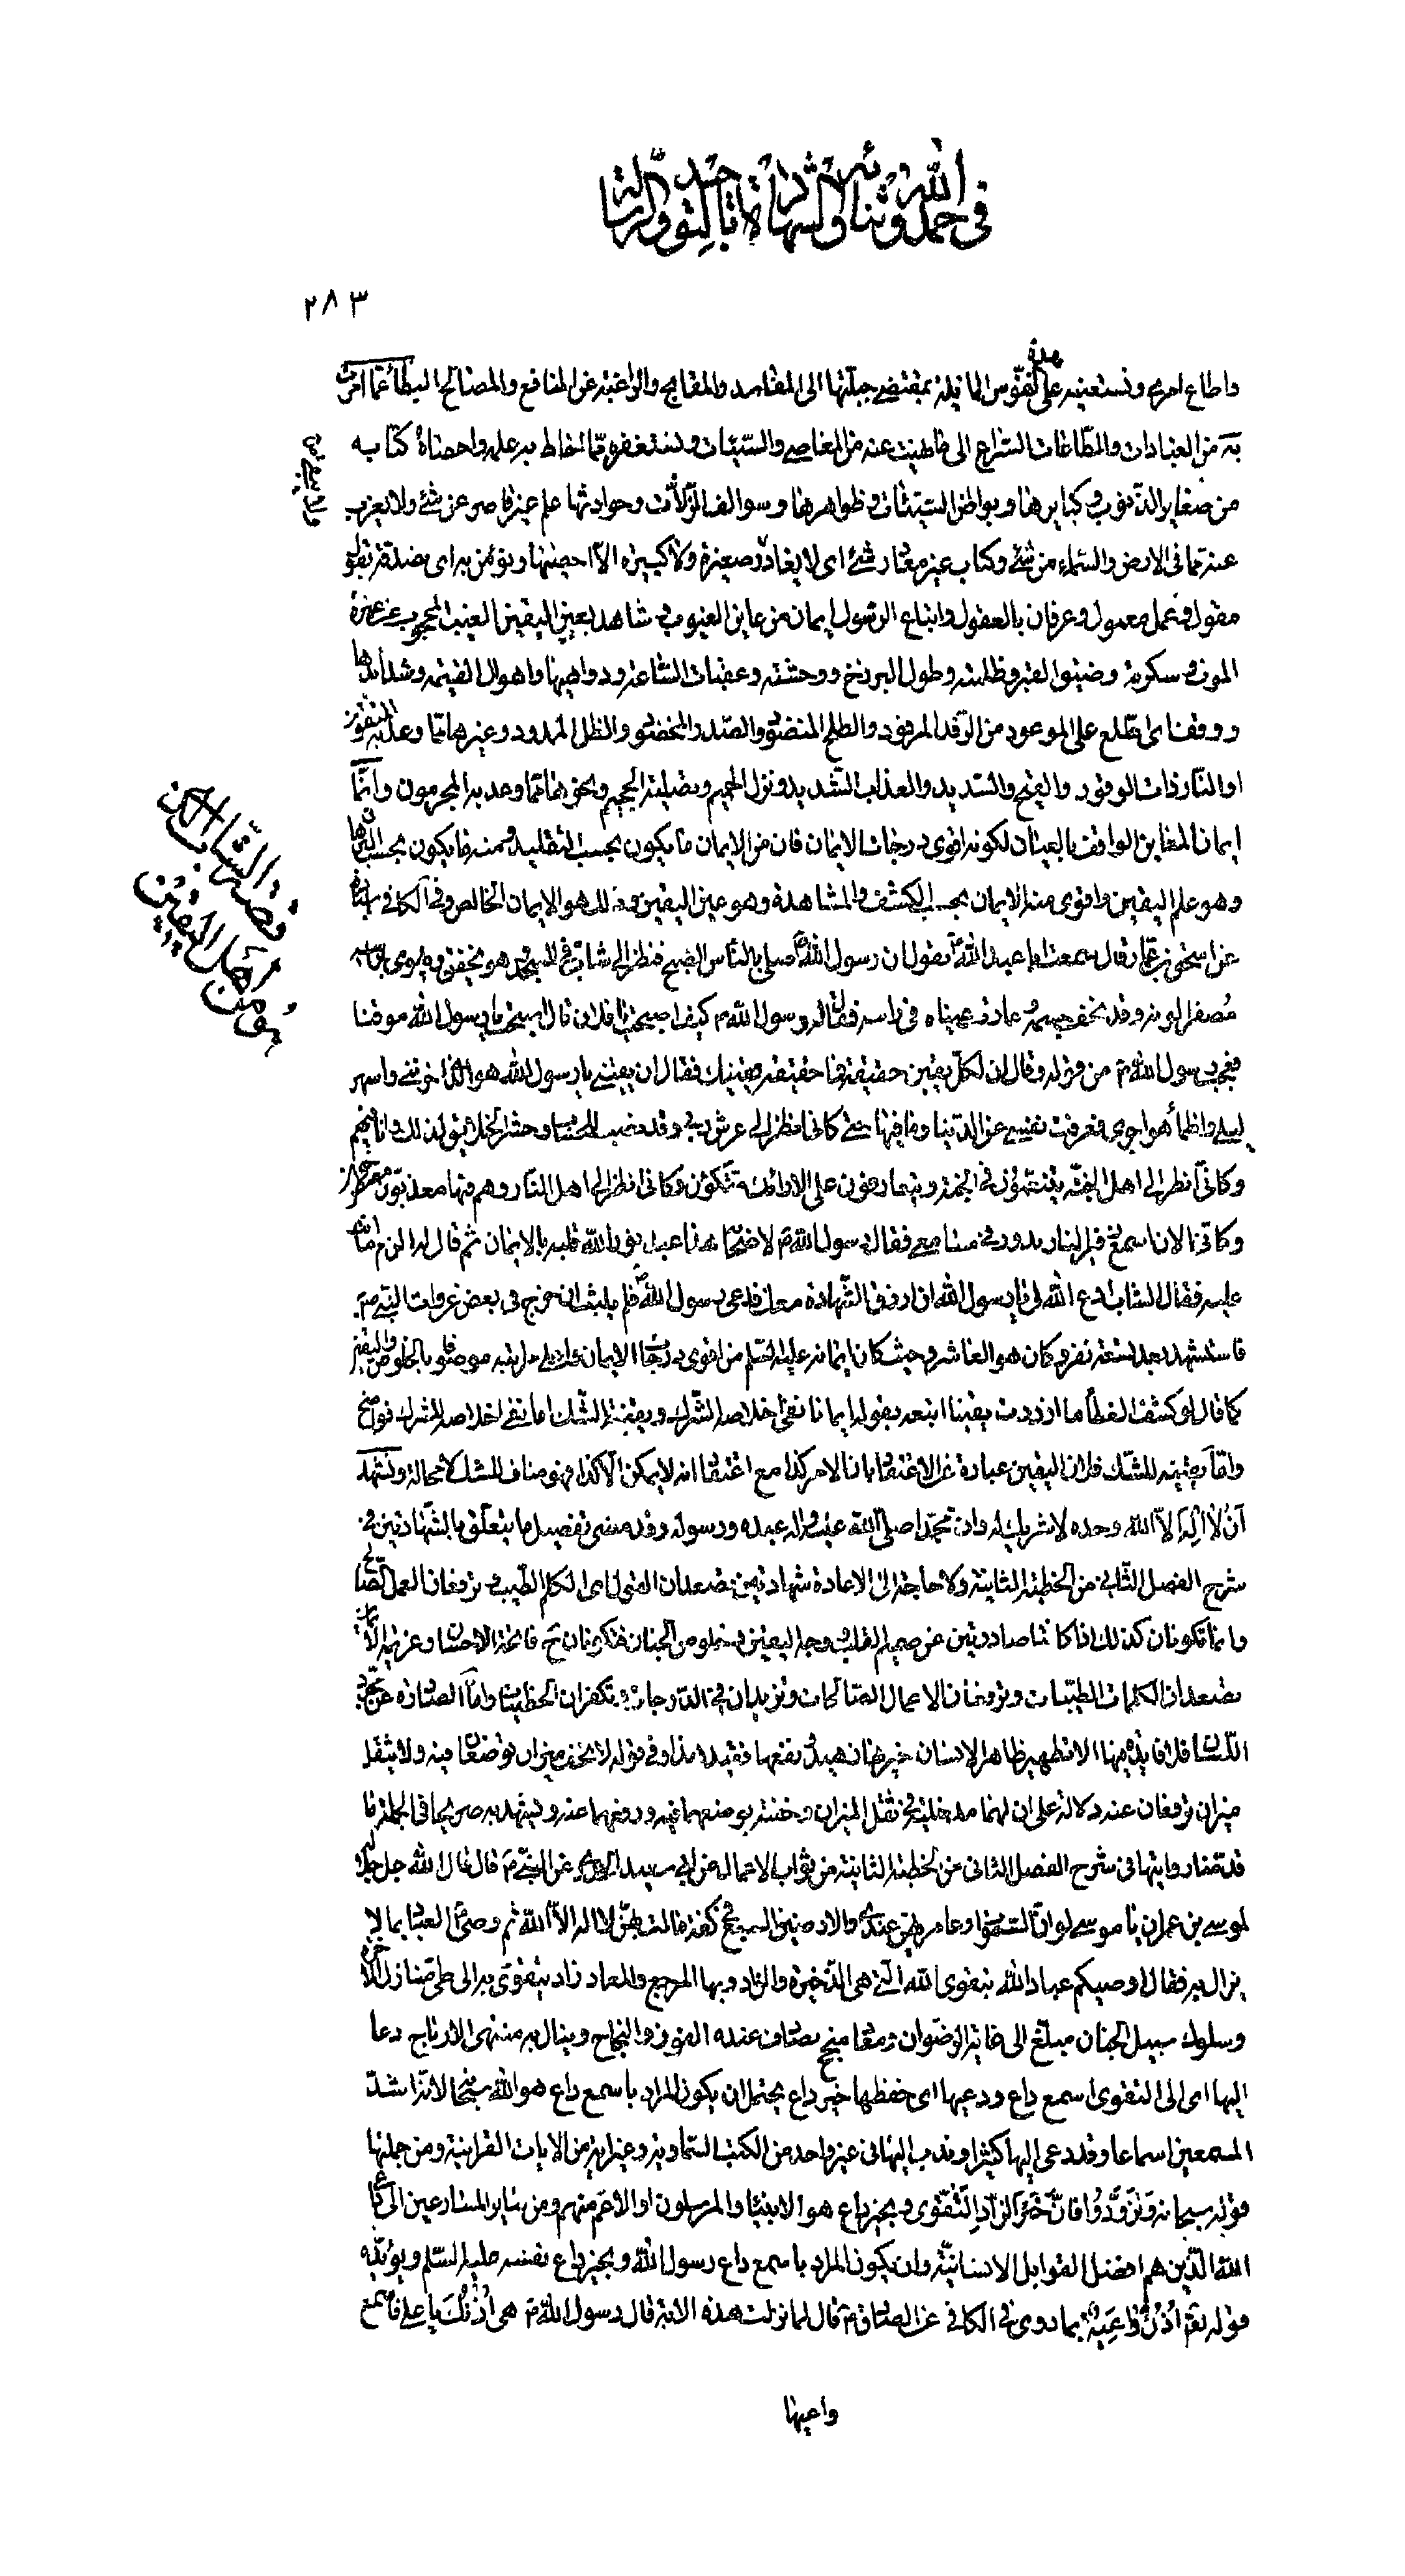 في حمد الله وثنائه والشهادة بالتوحيد والرسالة
٢٨٣
واطاع امره ونستعينه على هذه النفوس المائلة بمقتضى جبلّتها الى المفاسد والمقابح والراغبة عن المنافع والمصالح البطاء عمّا امرت
به من العبادات والطاعات السراع الى ما نهيت عنه من المعاصي والسيّئات ونستغفره ممّا احاط به علمه واحصاه كتابه
من صغاير الذنوب وكبايرها وبواطن السيئات وظواهرها وسوالف الزلّات وحوادثها علم غير قاصر عن شئ ولا يعزب
عنه ما فى الارض والسماء من شئ وكتاب غير مغادر شئ اى لا يغادر صغيرة ولا كبيرة الّا احصيها ونؤمن به اى نصدقه بقول
مقول وعمل معمول وعرفان بالعقول واتباع الرسول ايمان من عاين الغيوب اى شاهد بعين اليقين الغيب المحجوب عن غيره
الموت وسكرته وضيق القبر وظلمته وطول البرزخ ووحشته وعقبات الساعة ودواهيها واهوال القيمة وشدايدها
ووقف اى اطّلع على الموعود من الرفد المرفود والطلح المنضود والسدر المخضود والظل الممدود وغيرها ممّا وعد به المتقون
او النار ذات الوقود والقيح والصديد والعذاب الشديد ونزل الحميم وتصلية الجحيم ونحوها ممّا وعد به المجرمون وانّما
ايمان المعاين الواقف بالعيان لكونه اقوى درجات الايمان فان من الايمان ما يكون بحسب التقليد ومنه ما يكون بحسب البرهان
وهو علم اليقين واقوى منه الايمان بحسب الكشف والمشاهدة وهو عين اليقين وذلك هو الايمان الخالص وفى الكافى باسناده
عن اسحق بن عمّار قال سمعت ابا عبد الله يقول ان رسول الله صلى بالناس الصبح فنظر الى شاب فى المسجد وهو يخفق ويهوى براسه
مصفرا لونه وقد نحف جسمه وغارت عيناه فى راسه فقال له رسول الله كيف اصبحت يا فلان قال اصبحت يا رسول الله موقنا
فعجب رسول الله من قوله وقال ان لكل يقين حقيقة فما حقيقة يقينك فقال ان يقيني يا رسول الله هو الذى احزنني واسهر
ليلي واظمأ هواجرى فعزفت نفسي عن الدنيا وما فيها حتى كانى انظر الى عرش ربى وقد نصب للحساب وحشر الخلايق لذلك وانا فيهم
وكانى انظر الى اهل الجنة يتنعمون فى الجنة ويتعارفون على الارائك متكؤن وكانى انظر الى اهل النار وهم فيها معذبون مصطرخون
وكانى الان اسمع زفير النار يدور فى مسامعى فقال رسول الله لاصحابه هذا عبد نور الله قلبه بالايمان ثم قال له الزم ما انت
عليه فقال الشاب ادع الله لى يا رسول الله ان ارزق الشهادة معك فدعى له رسول الله فلم يلبث ان خرج فى بعض غزوات النبي
فاستشهد بعد تسعة نفر وكان هو العاشر وحيث كان ايمانه عليه السلم من اقوى درجات الايمان واعلى مراتبه موصوفا بالخلوص واليقين
كما قال لو كشف الغطاء ما ازددت يقينا اتبعه بقوله ايمانا نفى اخلاصه الشرك ويقينه الشك اما نفى اخلاصه للشرك فواضح
وامّا يقينه للشك فلان اليقين عبارة عن الاعتقاد بان الامر كذا مع اعتقاد انه لا يمكن الّا كذا فهو مناف للشك لا محالة ونشهد
ان لا اله الّا الله وحده لا شريك له وان محمّدا صلى الله عليه واله عبده ورسوله وقد مضى تفصيل ما يتعلق بالشهادتين فى
شرح الفصل الثانى من الخطبة الثانية ولا حاجة الى الاعادة شهادتين تصعدان القول اى الكلم الطيب وترفعان العمل الصالح
وانما تكونان كذلك اذا كانتا صادرتين عن صميم القلب وجد اليقين وخلو من الجنان فتكونان ح فاتحة الاحسان وعزيمة الايمان
تصعدان الكلمات الطيبات وترفعان الاعمال الصالحات وتزيدان فى الدرجات وتكفران الخطيئات وامّا الصادرة عن مجرد
اللسان فلا فايدة منها الا تطهير ظاهر الانسان هيد نفعها وفى قوله لا يخف ميزان توضعان فيه ولا يثقل
ميزان ترفعان عنه دلالة على ان لهما مدخلية فى ثقل الميزان وخفته بوضعهما فيه ورفعهما عنه ويشهد به صريحا فى الجملة ما
قدّمنا روايتها فى شرح الفصل الثانى من الخطبة الثانية من ثواب الاعمال عن ابى سعيد الخدرى عن النبي قال قال الله جل جلاله
لموسى بن عمران يا موسى لو ان السموات وعامريهن عندى والارضين السبع فى كفة مالت بهن لا اله الا الله ثم وصى العباد بما لا
يزال به فقال اوصيكم عباد الله بتقوى الله التي هى الذخيرة والزاد وبها المرجع والمعاد زاد يتقوى به الى طى منازل الاخرة
وسلوك سبيل الجنان مبلغ الى غاية الرضوان ومعاد منجح يصادف عنده الفوز والنجاح وينال به منتهى الارباح دعا
اليها اى الى التقوى اسمع داع ووعيها اى حفظها خير داع يحتمل ان يكون المراد باسمع داع هو الله سبحانه لانه اشد
المسمعين اسماعا وقد دعى اليها كثيرا وندب اليها فى غير واحد من الكتب السماوية وغير اية من الايات القرانية ومن جملتها
قوله سبحانه وَتَزَوَّدُوا فَاِنَّ خَيْرَ الزّادِ التَّقْوى وبخير داع هو الانبيا والمرسلون او الاعم منهم ومن ساير المسارعين الى داعى
الله الذين هم افضل القوابل الانسانيّة وان يكون المراد باسمع داع رسول الله وبخير داع نفسه عليه السلم ويؤيّده
قوله تعه اُذُنٌ وٰاعِيَةٌ بما روى فى الكافى عن الصادق قال لما نزلت هذه الاية قال رسول الله هى اُذُنُكَ يا علي
واعيها
قصّة الشاب الذى
هو من اهل اليقين